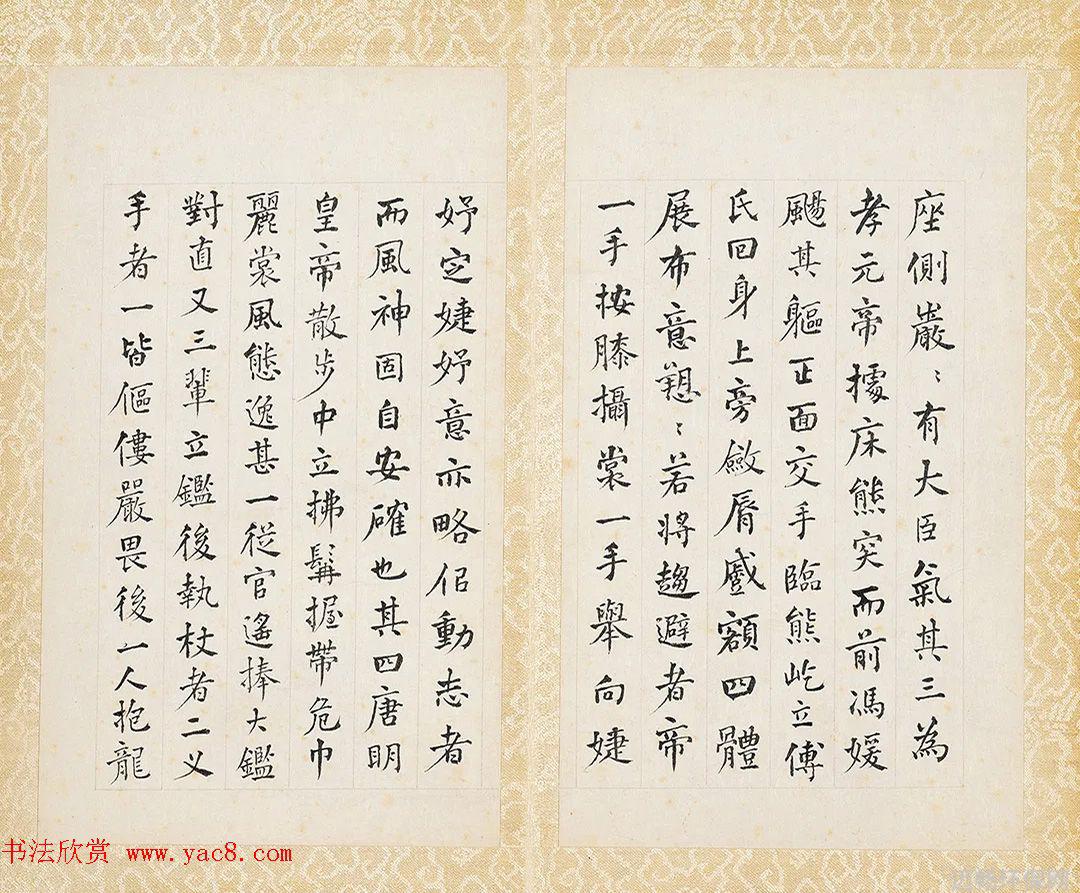 座側巖〻有大臣氣其三為
孝元帝據床熊突而前馮媛
颺其軀正面交手臨熊屹立傅
氏回身上旁斂脣蹙額四體
展布意𢠢〻若將趨避者帝
一手按膝攝裳一手舉向婕
妤定婕妤意亦略侶動志者
而風神固自安確也其四唐明
皇帝散步中立拂髯握帶危巾
麗裳風態逸甚一從官遙捧大鑑
對直又三輩立鑑後執杖者二义
手者一皆傴僂嚴畏後一人抱龍
书法欣赏 www.yac8.com